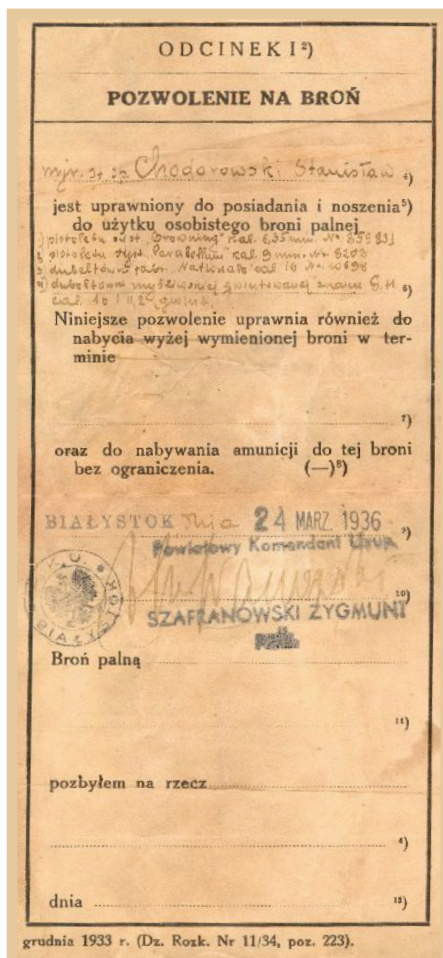 ODCINEK I²)
POZWOLENIE NA BROŃ
mjr. st. sp. Chodorowski Stanisław ⁴)
jest uprawniony do posiadania i noszenia⁵)
do użytku osobistego broni palnej
1) pistoletu syst. "Browning" kal. 6,35 mm. No. 35983
2) pistoletu syst. "Parabellum" kal. 9 mm. Nr. 8203
3) dubeltówki fabr. "National" cal 16 No. 10698
4) dubeltówki myśliwskiej gwintowanej znaku S.H. ⁶)
cal. 16
Niniejsze pozwolenie uprawnia również do
nabycia wyżej wymienionej broni w ter-
minie
⁷)
oraz do nabywania amunicji do tej broni
bez ograniczenia. (—)⁸)
BIAŁYSTOK dnia 24 MARZ. 1936 ⁹)
Powiatowy Komendant Uzup.
¹⁰)
SZAFRANOWSKI ZYGMUNT
ppłk.
BIAŁYSTOK
Broń palną
¹¹)
pozbyłem na rzecz
⁴)
dnia ¹²)
grudnia 1933 r. (Dz. Rozk. Nr 11/34, poz. 223).